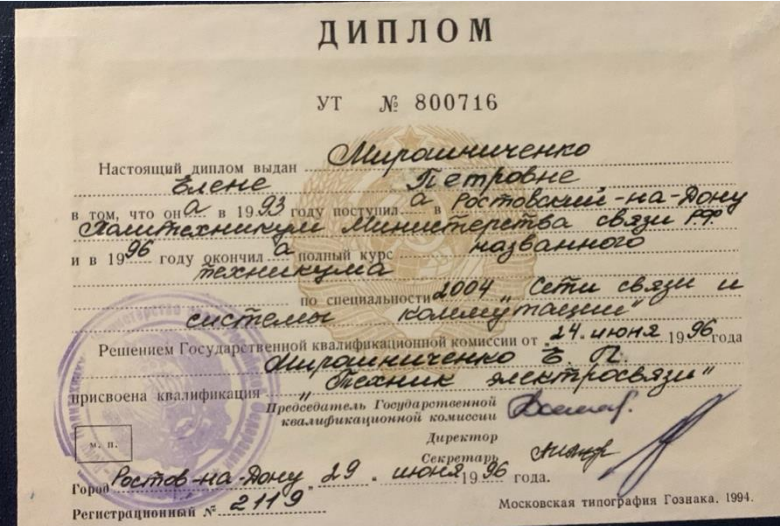 ДИПЛОМ
УТ № 800716
Настоящий диплом выдан Мирошниченко
Елене Петровне
в том, что она в 1993 году поступила в Ростовский-на-Дону
политехникум Министерства связи РФ
и в 1996 году окончила полный курс названного
техникума
по специальности 2004 „Сети связи и
системы коммутации“
Решением Государственной квалификационной комиссии от 24 июня 1996 года
Мирошниченко Е. П.
присвоена квалификация „Техник электросвязи“
Председатель Государственной
квалификационной комиссии
Директор
Секретарь
М. П.
Город Ростов-на-Дону 29 июня 1996 года.
Регистрационный № 2119
Московская типография Гознака. 1994.